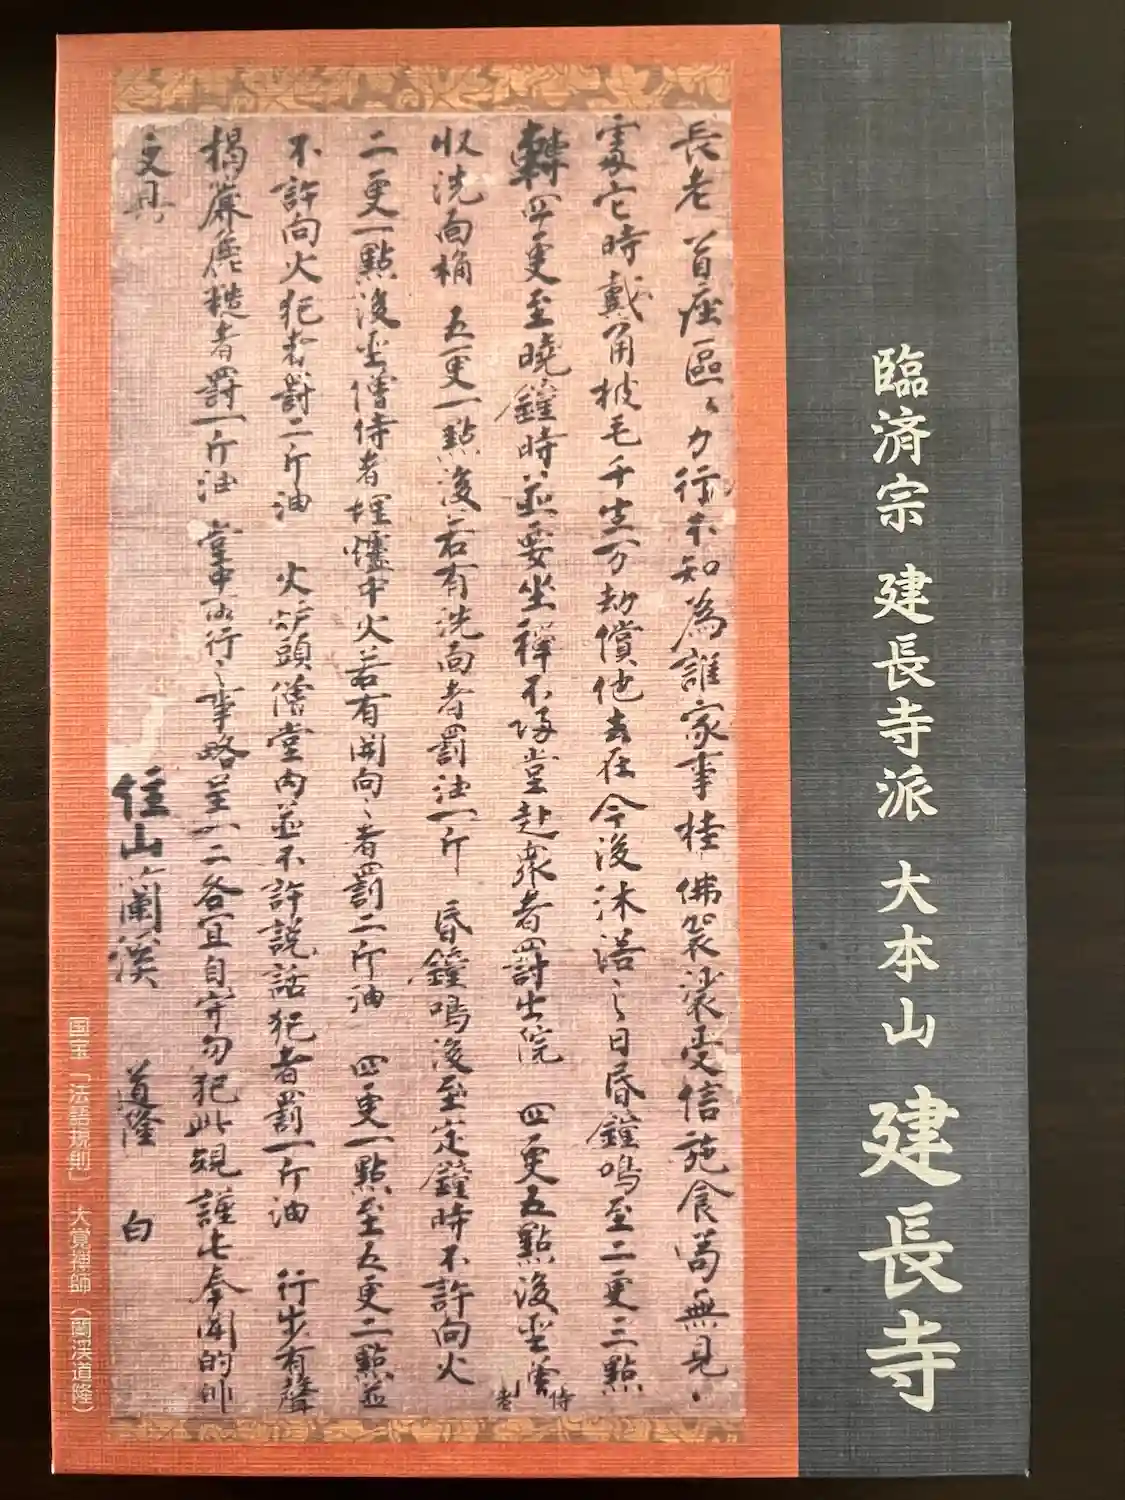 臨済宗 建長寺派 大本山 建長寺
長老首座區〻力行未知為誰家事挂佛袈裟受信施食苟無見〻
處它時戴角披毛千生万劫償他去在今後沐浴之日昏鐘鳴至二更三點
轉四更至曉鐘時並要坐禪不歸堂赴衆者罰出院 四更五點後聖僧侍者
收洗面桶 五更一點後若有洗面者罰油一斤 昏鐘鳴後至定鐘時不許向火
二更一點後聖僧侍者埋爐中火若有開向之者罰二斤油 四更一點至五更二點並
不許向火犯者罰二斤油 火炉頭僧堂内並不許説話犯者罰一斤油 行步有聲
揭簾麁糙者罰一斤油 堂中所行之事略呈一二各宜自守勿犯此規謹七奉聞的
文具
住山蘭溪 道隆 白
国宝「法語規則」 大覚禅師(蘭渓道隆)